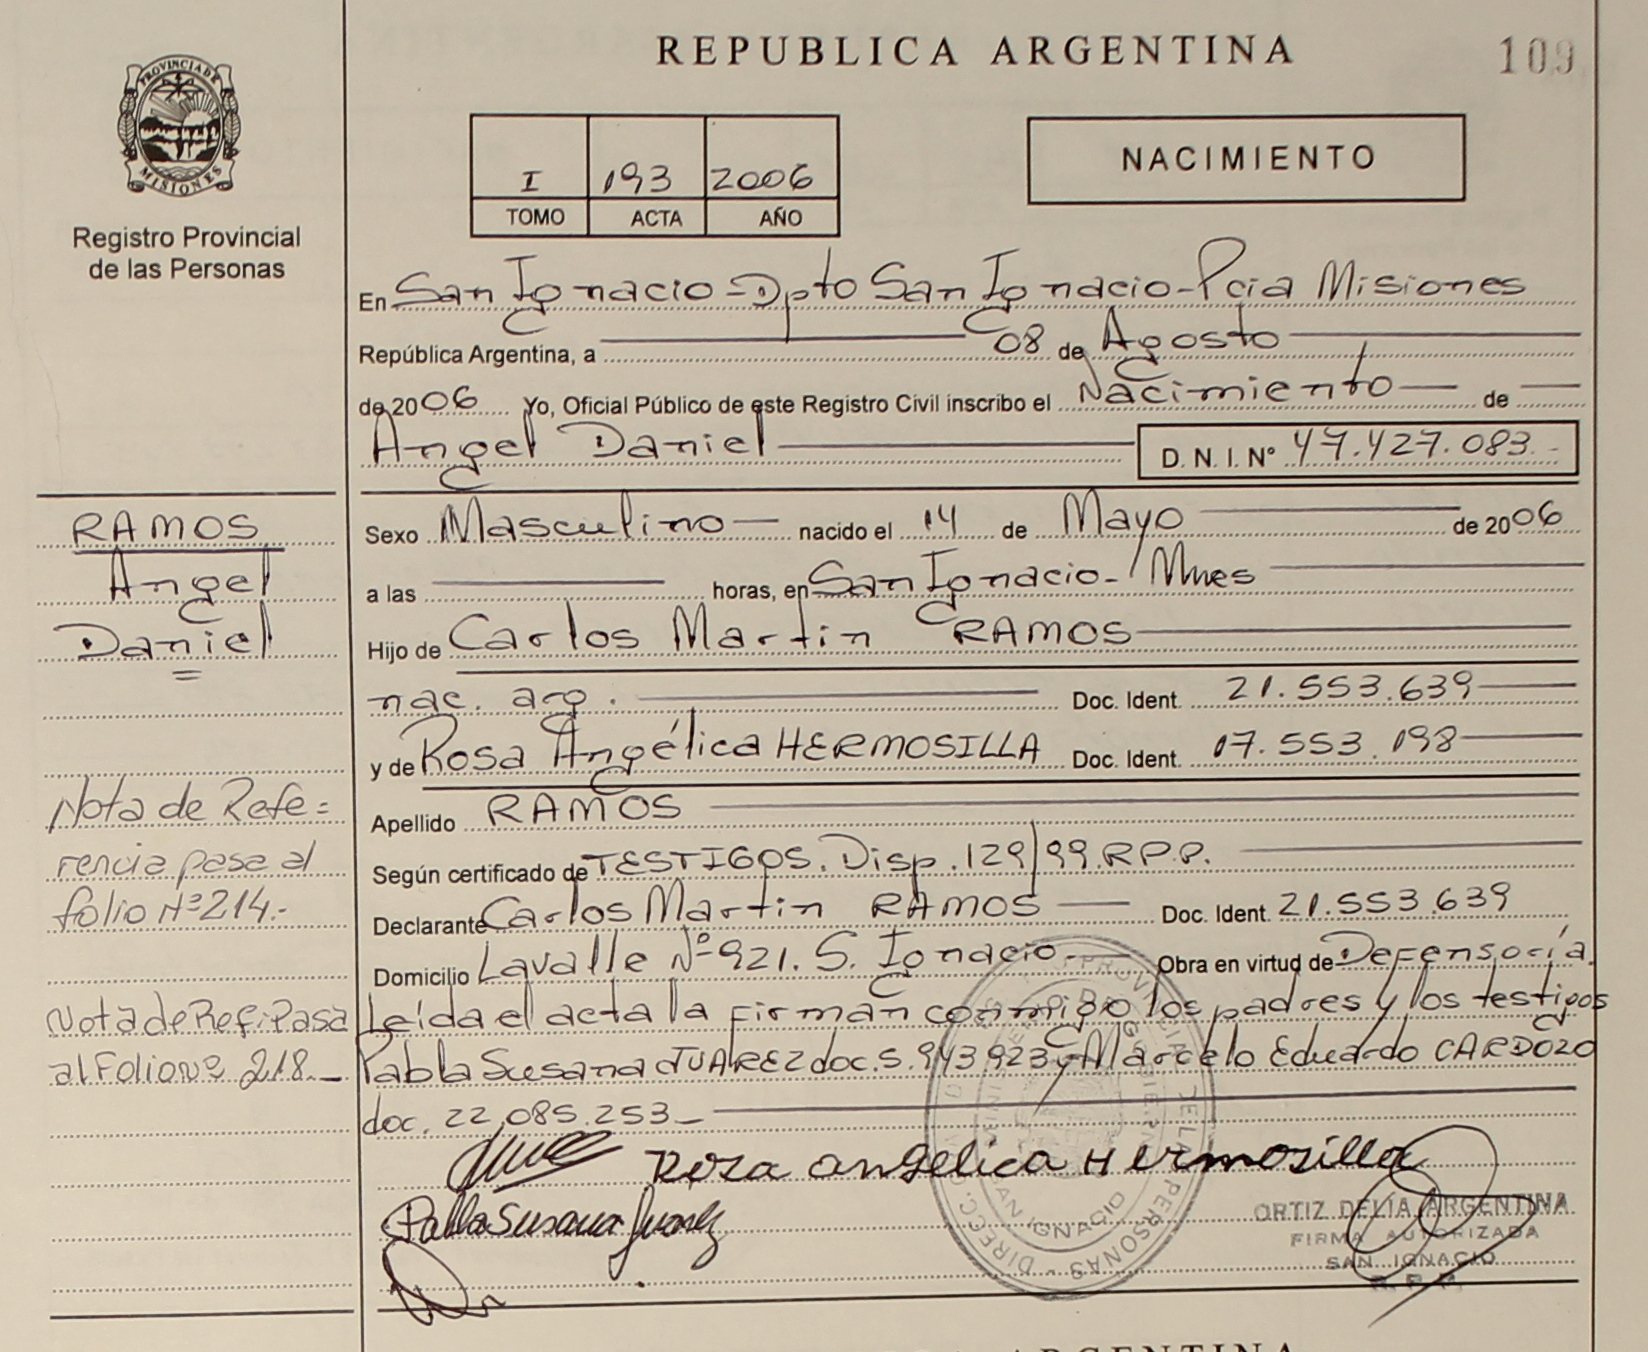 REPUBLICA ARGENTINA
109
PROVINCIA DE
MISIONES
Registro Provincial
de las Personas
I 193 2006
TOMO ACTA AÑO
NACIMIENTO
En San Ignacio - Dpto San Ignacio - Pcia Misiones
República Argentina, a 08 de Agosto
de 2006 Yo, Oficial Público de este Registro Civil inscribo el Nacimiento de
Angel Daniel D. N. I. Nº 47.427.083.-
RAMOS
Angel
Daniel
Sexo Masculino nacido el 14 de Mayo de 2006
a las horas, en San Ignacio - Mnes
Hijo de Carlos Martin RAMOS
nac. arg. Doc. Ident. 21.553.639
y de Rosa Angélica HERMOSILLA Doc. Ident. 17.553.198
Apellido RAMOS
Según certificado de TESTIGOS. Disp. 129/99.R.P.P.
Declarante Carlos Martin RAMOS Doc. Ident. 21.553.639
Domicilio Lavalle Nº 921. S. Ignacio.- Obra en virtud de Defensoría.
Leída el acta la firman conmigo los padres y los testigos
Pabla Susana JUAREZ doc. 5.943.923 y Marcelo Eduardo CARDOZO
doc. 22.085.253.-
Nota de Refe=
rencia pasa al
folio Nº 214.-
Nota de Ref. Pasa
al Folio Nº 218.-
Rosa angelica Hermosilla
Pabla Susana Juarez
SAN IGNACIO
ORTIZ DELIA ARGENTINA
FIRMA AUTORIZADA
SAN IGNACIO
ARGENTINA